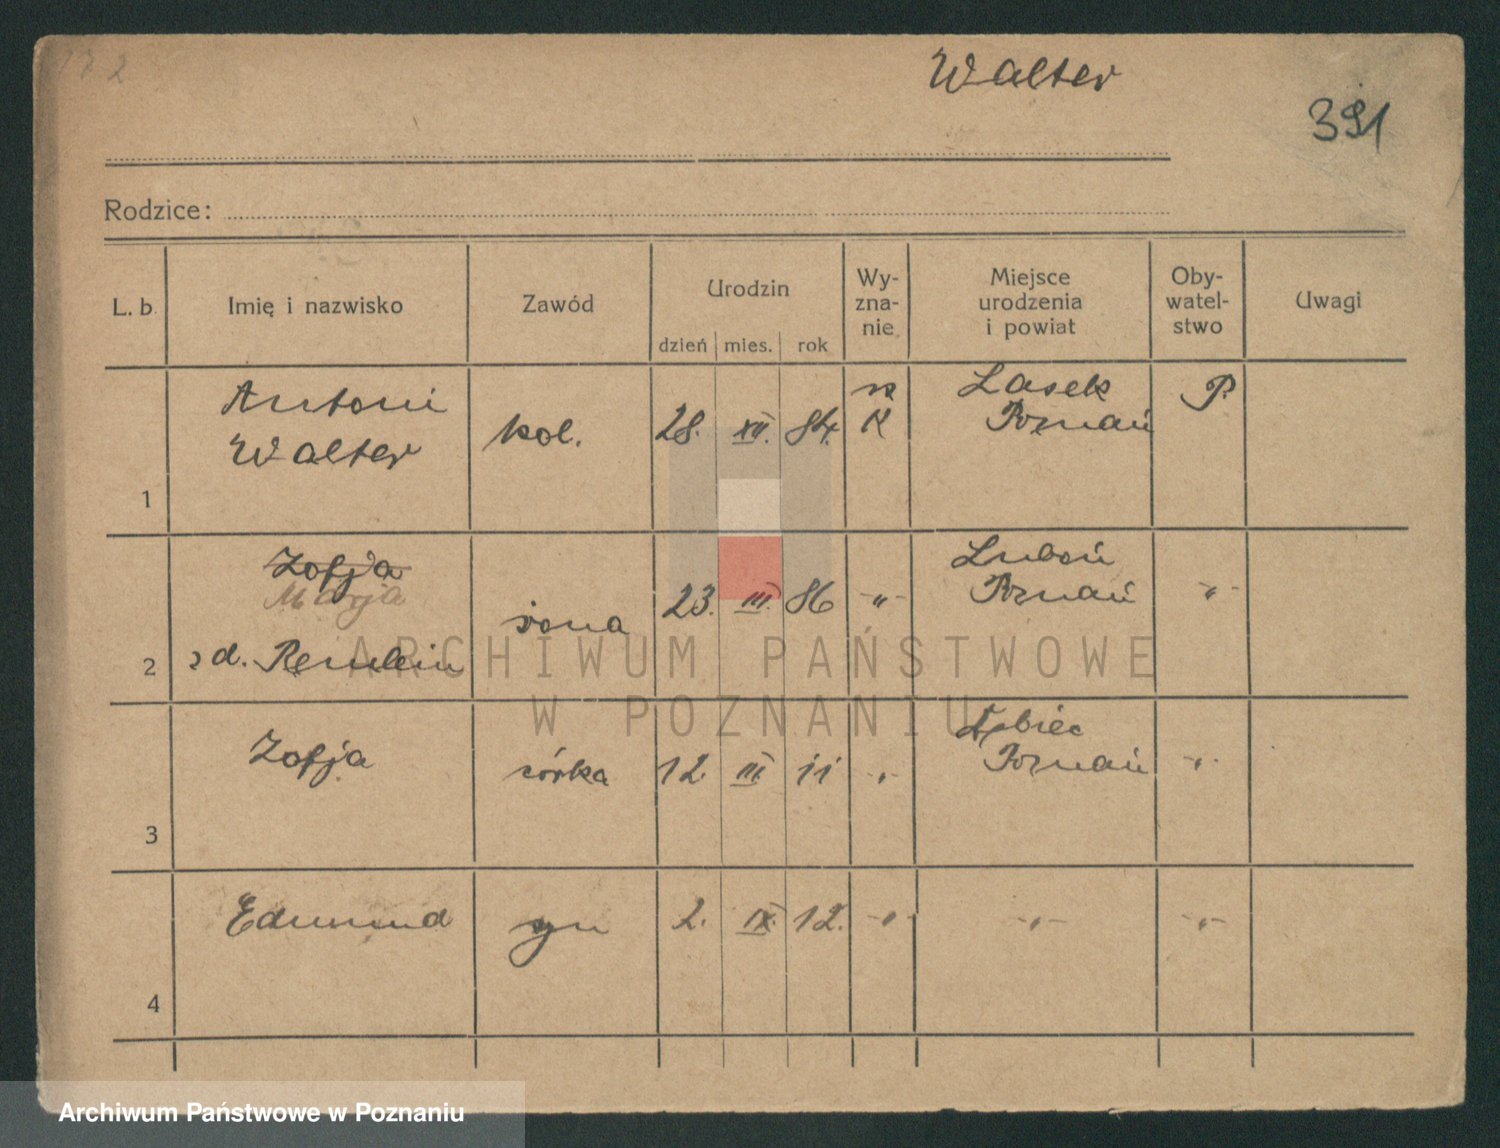 172
Walter
391
Rodzice:
L. b. Imię i nazwisko Zawód Urodzin dzień mies. rok Wy-zna-nie Miejsce urodzenia i powiat Oby-watel-stwo Uwagi
Antoni Lasek P.
Walter kol. 28. XII. 84. r K Poznań
1
Zofja Luboń
Marja 23. III. 86 -„- Poznań -„-
żona
2 z d. Remlein
Dębiec
Zofja córka 12. III. 11 -„- Poznań -„-
3
Edmund syn 2. IX. 12. -„- -„- -„-
4
ARCHIWUM PAŃSTWOWE
W POZNANIU
Archiwum Państwowe w Poznaniu